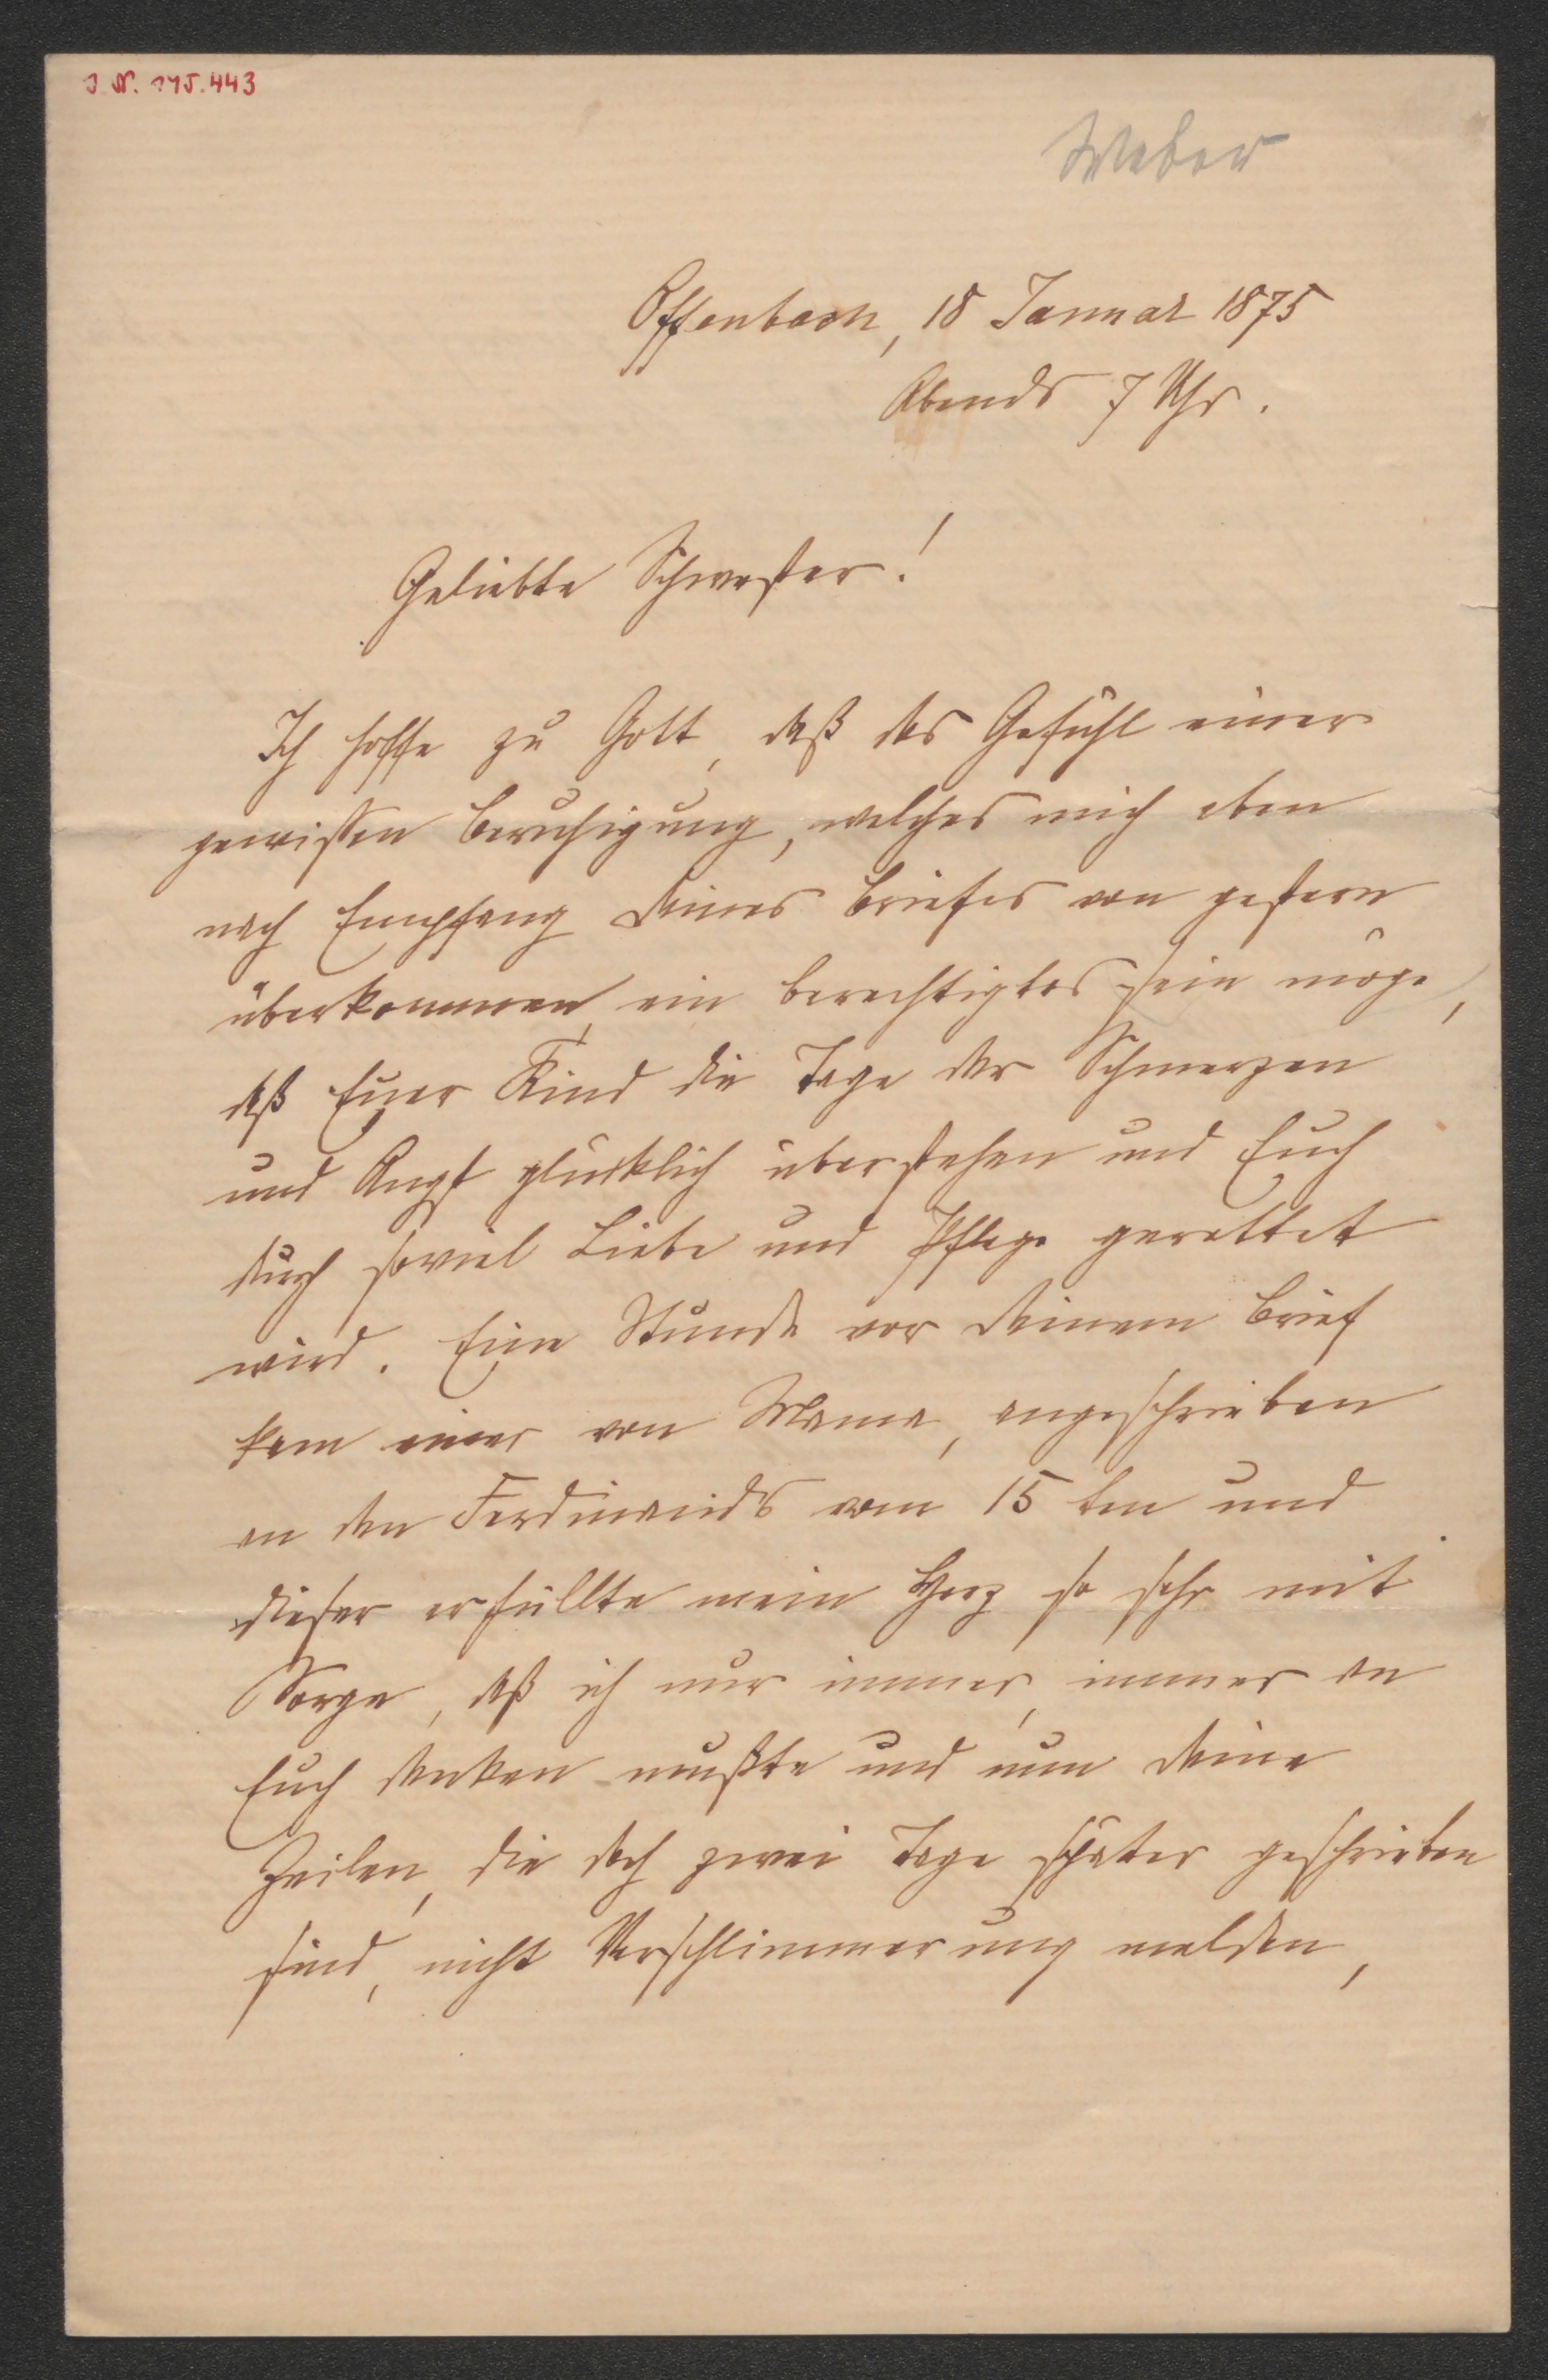 J. N. 145.443
Weber
Offenbach, 18 Januar 1875
Abends 7 Uhr.
Geliebte Schwester!
Ich hoffe zu Gott, daß das Gefühl einer
gewissen Beruhigung, welches mich eben
nach Empfang Deines Briefes von gestern
überkommen, ein berechtigtes sein möge,
daß Euer Kind die Tage der Schmerzen
und Angst glücklich überstehen und Euch
durch soviel Liebe und Pflege gerettet
wird. Eine Stunde vor Deinem Brief
kam einer von Mama, angeschrieben
an den Ferdinands vom 15ten und
dieser erfüllte mein Herz so sehr mit
Sorge, daß ich nur immer, immer an
Euch denken mußte und nun Deine
Zeilen, die doch zwei Tage später geschrieben
sind, nicht Verschlimmerung melden,